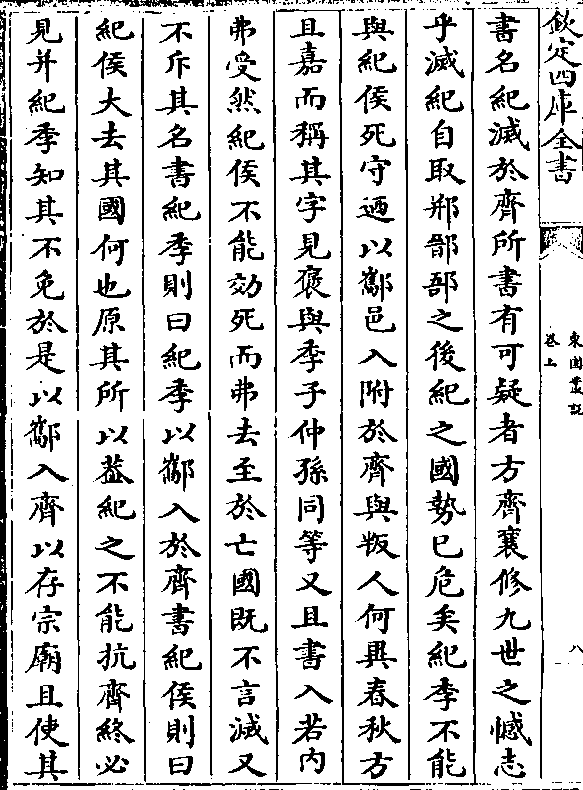 欽定四庫全書
東園叢說
卷上
八
書名紀滅於齊所書有可疑者方齊襄修九世之憾志
乎滅紀自取郱鄑郚之後紀之國勢已危矣紀季不能
與紀侯死守迺以酅邑入附於齊與叛人何異春秋方
且嘉而稱其字見褒與季子仲孫同等又且書入若内
弗受然紀侯不能效死而弗去至於亡國既不言滅又
不斥其名書紀季則曰紀季以酅入於齊書紀侯則曰
紀侯大去其國何也原其所以葢紀之不能抗齊終必
見并紀季知其不免於是以酅入齊以存宗廟且使其